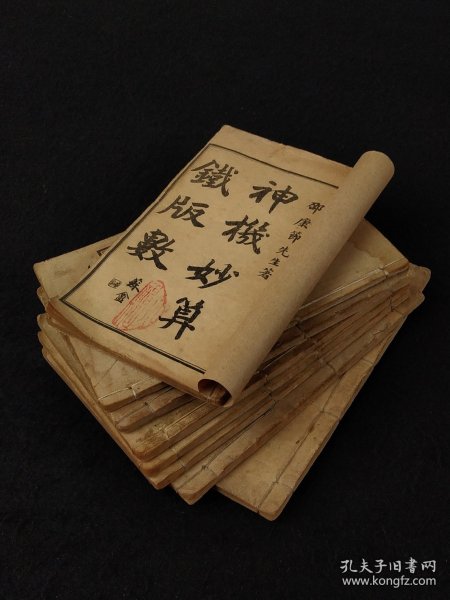 邵康節先生著
神機妙算
鐵版數
孔夫子旧书网
www.kongfz.com